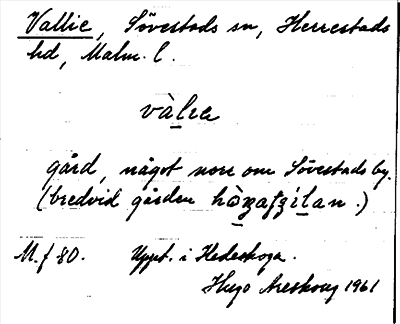 Vallie, Sövestads sn, Herrestads
hd, Malm. l.
gård, något norr om Sövestads by.
(bredvid gården
M. f 80. Uppt. i Hedeskoga.
Hugo Areskoug 1961